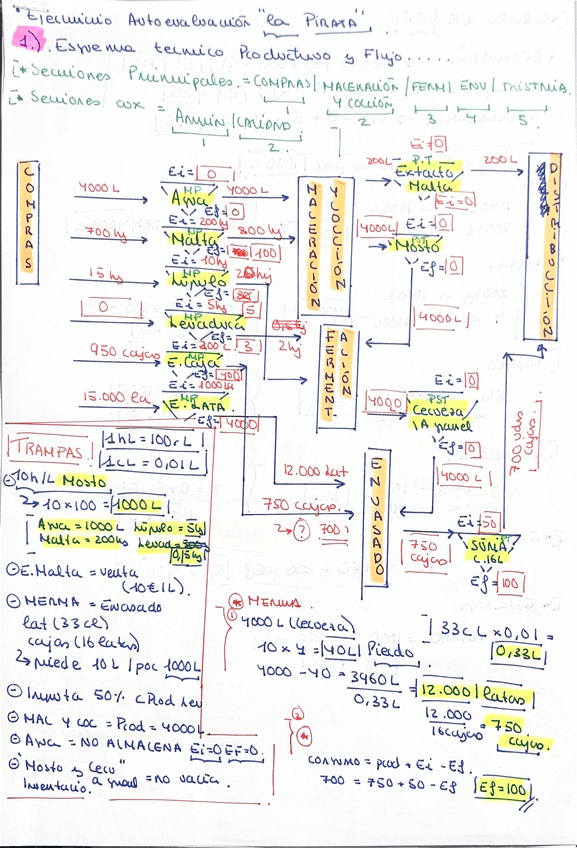 "Ejercicio Autoevaluación "la PIRATA".
1.) Esquema tecnico Productivo y Flujo.....
[* Secciones Principales = COMPRAS / MACERACIÓN Y COCCIÓN / FERM / ENV / DISTRIB.
1 2 3 4 5
[* Secciones aux = ALMACÉN / CALIDAD
1 2.
COMPRAS
4000 L
Ei = 0
MP
Agua
Ef = 0
4000 L
700 kg
Ei = 200 kg
MP
Malta
Ef = 100
800 kg
15 kg
Ei = 10 kg
MP
Lúpulo
20 kg
0
Ei = 5 kg
5
MP
Levadura
Ef = 3
2 kg
950 cajas
MP
E. Caja
Ef = 400
15.000 la
Ei = 1000 la
MP
E. LATA
Ef = 4000
MACERACIÓN Y COCCIÓN
Ei = 0
200 L
P.T
Extracto Malta
Ef = 0
200 L
4000 L
Ei = 0
PST
Mosto
Ef = 0
4000 L
DISTRIBUCCIÓN
FERMENTACIÓN
4000 L
Ei = 0
PST
Cerveza A granel
Ef = 0
4000 L
12.000 Lat
750 cajas.
↳ ? 700
ENVASADO
750 cajas
Ei = 50
PT
SUMA C. 16L
Ef = 100
700 udes cajas.
TRAMPAS
1 hL = 100 L
1 cL = 0,01 L
⊖ 10 h/L Mosto
↳ 10 x 100 = 1000 L
Agua = 1000 L Lúpulo = 5 kg
Malta = 200 kg Levad = 0,5 kg
⊖ E. Malta = venta
(10€ 1 L)
⊖ MERMA = Envasado
lat (33 cl)
cajas (16 latas)
↳ pierde 10 L / por 1000 L
⊖ Imputa 50% c Prod Lev
⊖ MAL y COC = Prod = 4000 L
⊖ Agua = NO ALMACENA Ei=0 EF=0.
⊖ Mosto y Cerv"
Inventario. a granel = no varía.
* MERMA
1
4000 L (cerveza)
10 x 4 = 40 L Pierdo
4000 - 40 = 3960 L
0,33 L
= 12.000 latas
33 cL x 0,01 =
0,33 L
12.000
16 cajas
= 750 cajas.
2
*
consumo = prod + Ei - Ef.
700 = 750 + 50 - Ef
Ef = 100